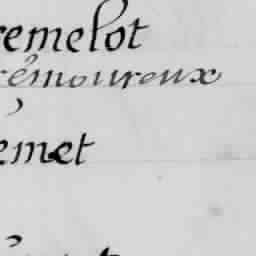 remelot
remoureux
emet